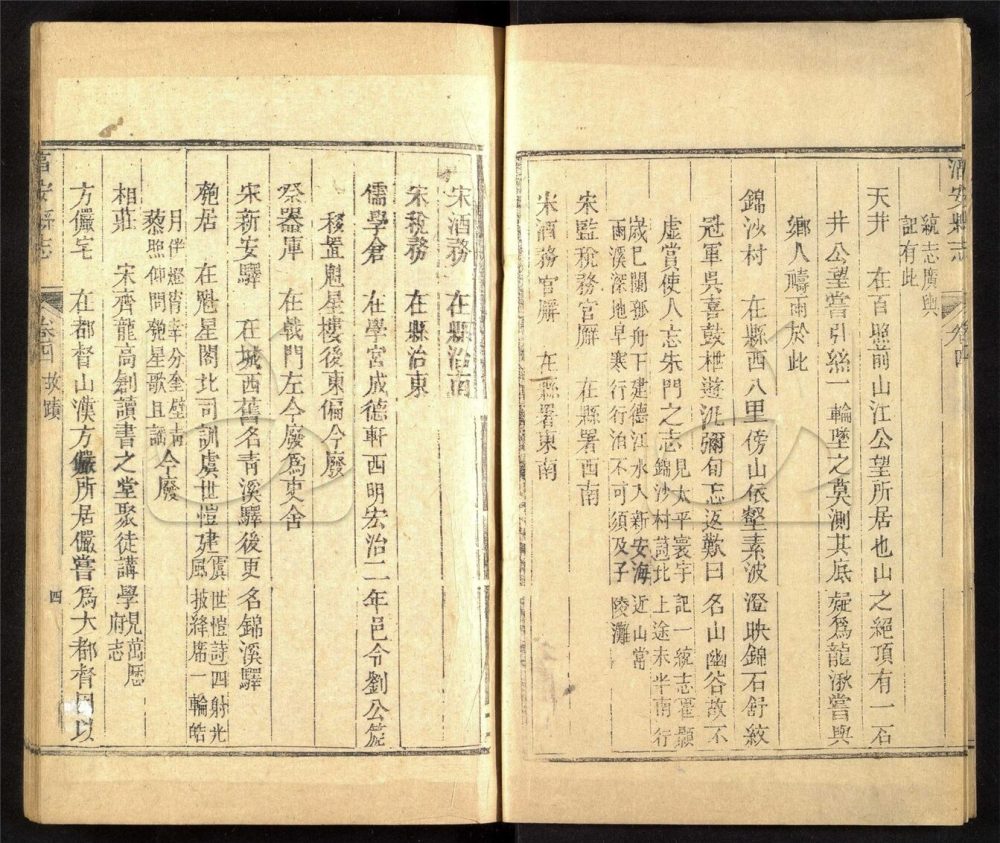 淳安縣志 卷四
統志廣輿
記有此
天井 在百照前山江公望所居也山之絕頂有一石
井公望嘗引絲一輪墜之莫測其底疑爲龍湫嘗與
鄉人禱雨於此
錦沙村 在縣西八里傍山依壑素波澄映錦石舒紋
冠軍吳喜鼓枻遊泥彌旬忘返歎曰名山幽谷故不
虛賞使人忘朱門之志見太平寰宇記一統志霍顥
錦沙村詩北上途未半南行
歲已闌孤舟下建德江水入新安海近山當
雨溪深地早寒行行泊不可須及子陵灘
宋監稅務官廨 在縣署西南
宋酒務官廨 在縣署東南
宋酒務 在縣治南
宋稅務 在縣治東
儒學倉 在學宮成德軒西明宏治二年邑令劉公箎
移置魁星樓後東偏今廢
祭器庫 在戟門左今廢爲吏舍
宋新安驛 在城西舊名青溪驛後更名錦溪驛
匏居 在魁星閣北司訓虞世愷建虞世愷詩四射光
風披絳席一輪皓
月伴燈宵幸分奎壁青
藜照仰問匏星歌且謠今廢
相莊 宋齊龍高創讀書之堂聚徒講學見萬歷
府志
方儼宅 在都督山漢方儼所居儼嘗爲大都督因以
淳安縣志 卷四 故蹟 四